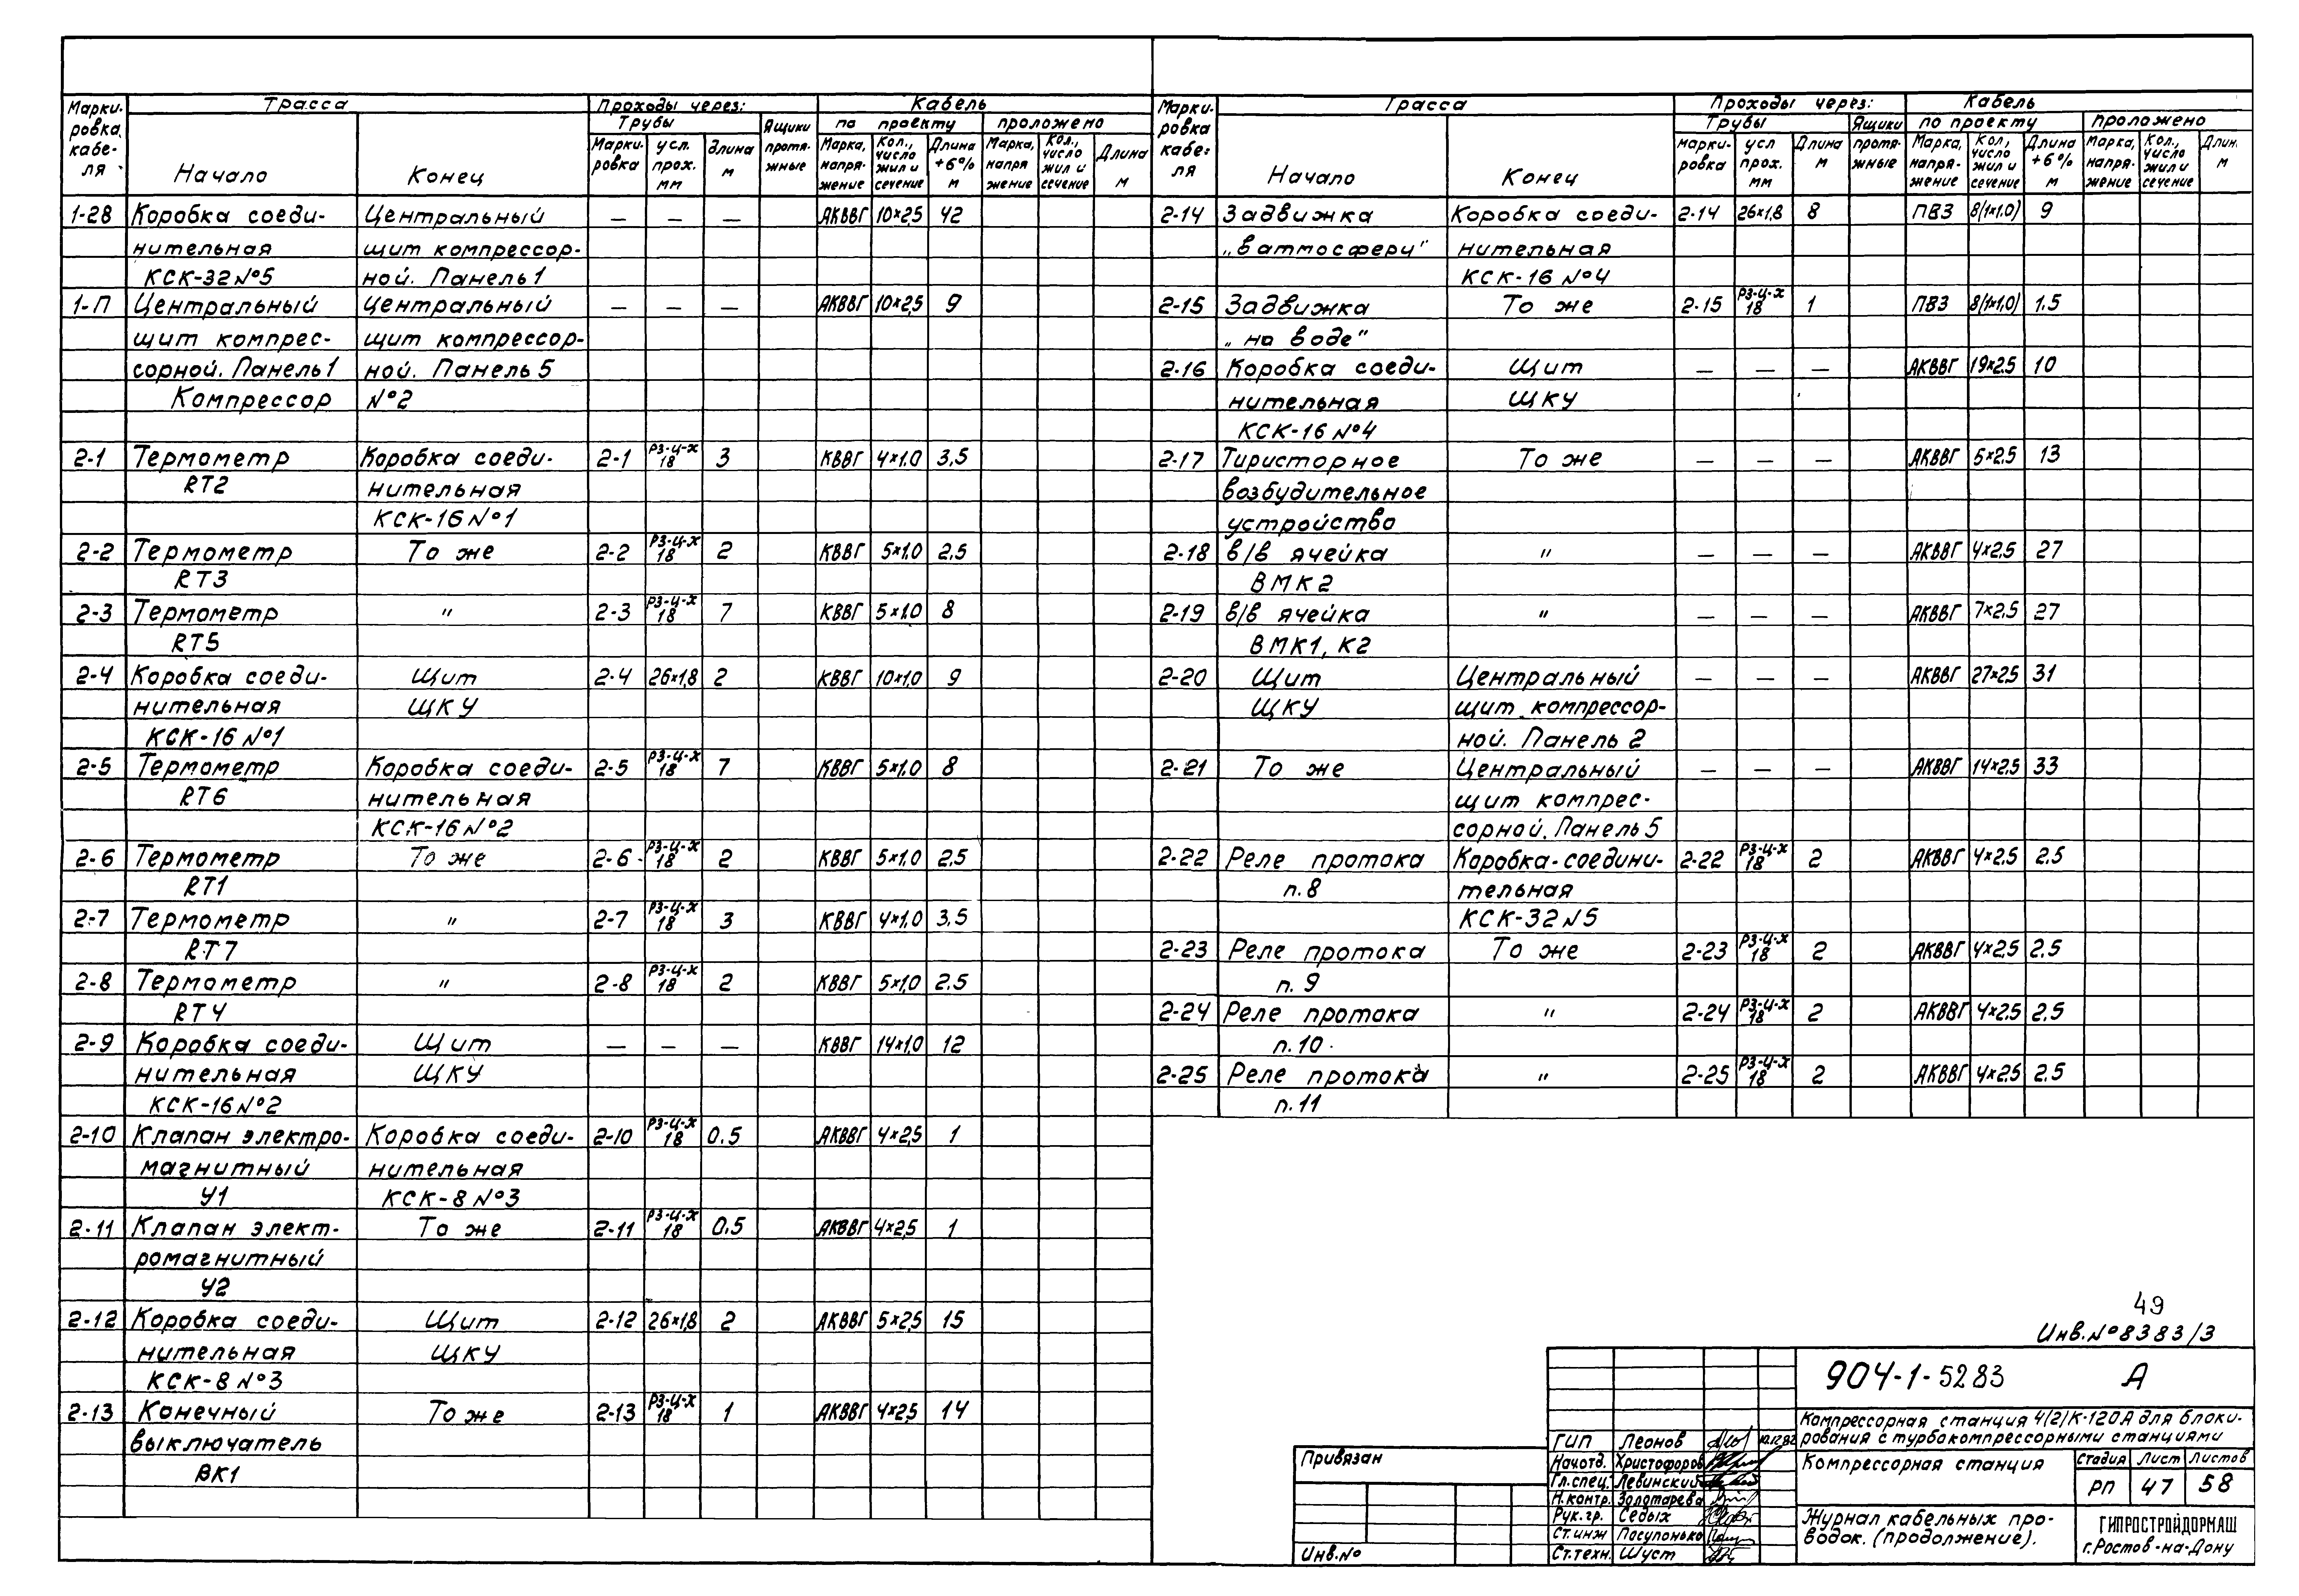 Марки- ровка кабе- ля | Трасса | Проходы через: | Кабель
Трубы | Ящики протя- жные | по проекту | проложено
Начало | Конец | Марки- ровка | усл. прох. мм | Длина м | Марка, напря- жение | Кол., число жил и сечение | Длина +6% м | Марка, напря жение | Кол., число жил и сечение | Длина м
1-28 Коробка соеди- Центральный — — — АКВВГ 10×2,5 42
нительная щит компрессор-
КСК-32 №5 ной. Панель 1
1-П Центральный Центральный — — — АКВВГ 10×2,5 9
щит компрес- щит компрессор-
сорной. Панель 1 ной. Панель 5
Компрессор №2
2-1 Термометр Коробка соеди- 2-1 РЗ-Ц-Х 18 3 КВВГ 4×1,0 3,5
RT2 нительная
КСК-16 №1
2-2 Термометр То же 2-2 РЗ-Ц-Х 18 2 КВВГ 5×1,0 2,5
RT3
2-3 Термометр " 2-3 РЗ-Ц-Х 18 7 КВВГ 5×1,0 8
RT5
2-4 Коробка соеди- Щит 2-4 26×1,8 2 КВВГ 10×1,0 9
нительная ЩКУ
КСК-16 №1
2-5 Термометр Коробка соеди- 2-5 РЗ-Ц-Х 18 7 КВВГ 5×1,0 8
RT6 нительная
КСК-16 №2
2-6 Термометр То же 2-6 РЗ-Ц-Х 18 2 КВВГ 5×1,0 2,5
RT1
2-7 Термометр " 2-7 РЗ-Ц-Х 18 3 КВВГ 4×1,0 3,5
RT7
2-8 Термометр " 2-8 РЗ-Ц-Х 18 2 КВВГ 5×1,0 2,5
RT4
2-9 Коробка соеди- Щит — — — КВВГ 14×1,0 12
нительная ЩКУ
КСК-16 №2
2-10 Клапан электро- Коробка соеди- 2-10 РЗ-Ц-Х 18 0,5 АКВВГ 4×2,5 1
магнитный нительная
У1 КСК-8 №3
2-11 Клапан элект- То же 2-11 РЗ-Ц-Х 18 0,5 АКВВГ 4×2,5 1
ромагнитный
У2
2-12 Коробка соеди- Щит 2-12 26×1,8 2 АКВВГ 5×2,5 15
нительная ЩКУ
КСК-8 №3
2-13 Конечный То же 2-13 РЗ-Ц-Х 18 1 АКВВГ 4×2,5 14
выключатель
ВК1
Марки- ровка кабе- ля | Трасса | Проходы через: | Кабель
Трубы | Ящики протя- жные | по проекту | проложено
Начало | Конец | марки- ровка | усл прох. мм | Длина м | Марка, напря- жение | Кол, число жил и сечение | Длина +6% м | Марка, напря- жение | Кол., число жил и сечение | Длин. м
2-14 Задвижка Коробка соеди- 2-14 26×1,8 8 ПВЗ 8(1×1,0) 9
„в атмосферу" нительная
КСК-16 №4
2-15 Задвижка То же 2-15 РЗ-Ц-Х 18 1 ПВЗ 8(1×1,0) 1,5
„на воде"
2-16 Коробка соеди- Щит — — — АКВВГ 19×2,5 10
нительная ЩКУ
КСК-16 №4
2-17 Тиристорное То же — — — АКВВГ 5×2,5 13
возбудительное
устройство
2-18 в/в ячейка " — — — АКВВГ 4×2,5 27
ВМК2
2-19 в/в ячейка " — — — АКВВГ 7×2,5 27
ВМК1, К2
2-20 Щит Центральный — — — АКВВГ 27×2,5 31
ЩКУ щит компрессор-
ной. Панель 2
2-21 То же Центральный — — — АКВВГ 14×2,5 33
щит компрес-
сорной. Панель 5
2-22 Реле протока Коробка-соедини- 2-22 РЗ-Ц-Х 18 2 АКВВГ 4×2,5 2,5
п.8 тельная
КСК-32 N5
2-23 Реле протока То же 2-23 РЗ-Ц-Х 18 2 АКВВГ 4×2,5 2,5
п.9
2-24 Реле протока " 2-24 РЗ-Ц-Х 18 2 АКВВГ 4×2,5 2,5
п.10
2-25 Реле протока " 2-25 РЗ-Ц-Х 18 2 АКВВГ 4×2,5 2,5
п.11
49
Инв.№8383/3
904-1-5283 А
Компрессорная станция 4/2/К-120А для блоки-
рования с турбокомпрессорными станциями
ГИП Леонов 10.12.82
Нач.отд. Христофоров
Гл.спец. Левинский
Н.контр. Золотарева
Рук.гр. Седых
Ст.инж Пасулонько
Ст.техн. Шуст
Компрессорная станция
Стадия Лист Листов
РП 47 58
Журнал кабельных про-
водок. (продолжение).
ГИПРОСТРОЙДОРМАШ
г.Ростов-на-Дону
Привязан
Инв.№